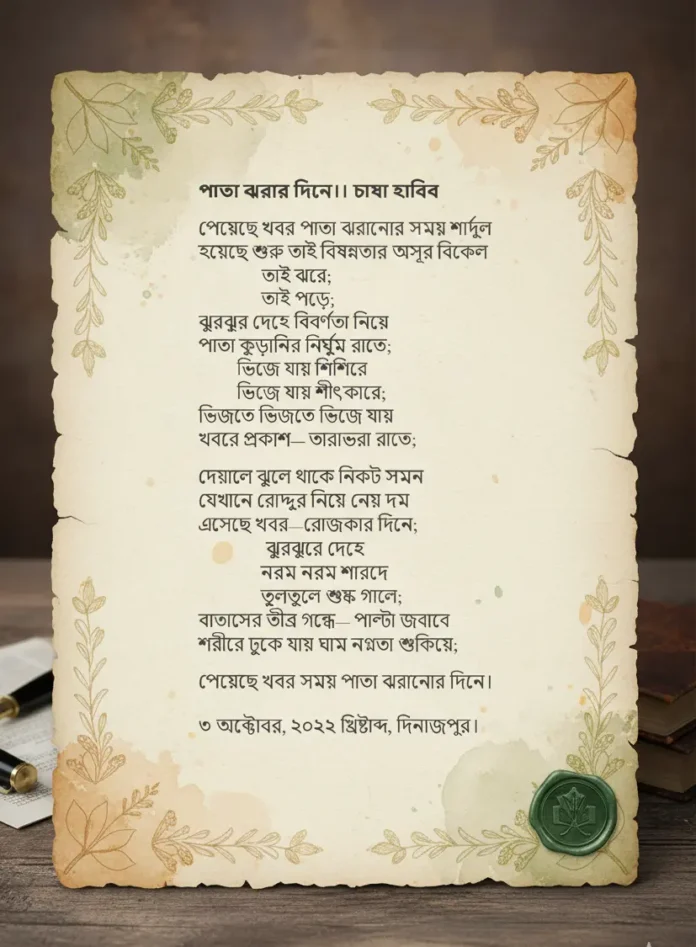 পাতা ঝরার দিনে।। চাষা হাবিব
পেয়েছে খবর পাতা ঝরানোর সময় শার্দুল
হয়েছে শুরু তাই বিষন্নতার অসূর বিকেল
তাই ঝরে;
তাই পড়ে;
ঝুরঝুর দেহে বিবর্ণতা নিয়ে
পাতা কুড়ানির নির্ঘুম রাতে;
ভিজে যায় শিশিরে
ভিজে যায় শীৎকারে;
ভিজতে ভিজতে ভিজে যায়
খবরে প্রকাশ— তারাভরা রাতে;
দেয়ালে ঝুলে থাকে নিকট সমন
যেখানে রোদ্দুর নিয়ে নেয় দম
এসেছে খবর—রোজকার দিনে;
ঝুরঝুরে দেহে
নরম নরম শারদে
তুলতুলে শুষ্ক গালে;
বাতাসের তীব্র গন্ধে— পাল্টা জবাবে
শরীরে ঢুকে যায় ঘাম নগ্নতা শুকিয়ে;
পেয়েছে খবর সময় পাতা ঝরানোর দিনে।
৩ অক্টোবর, ২০২২ খ্রিষ্টাব্দ, দিনাজপুর।